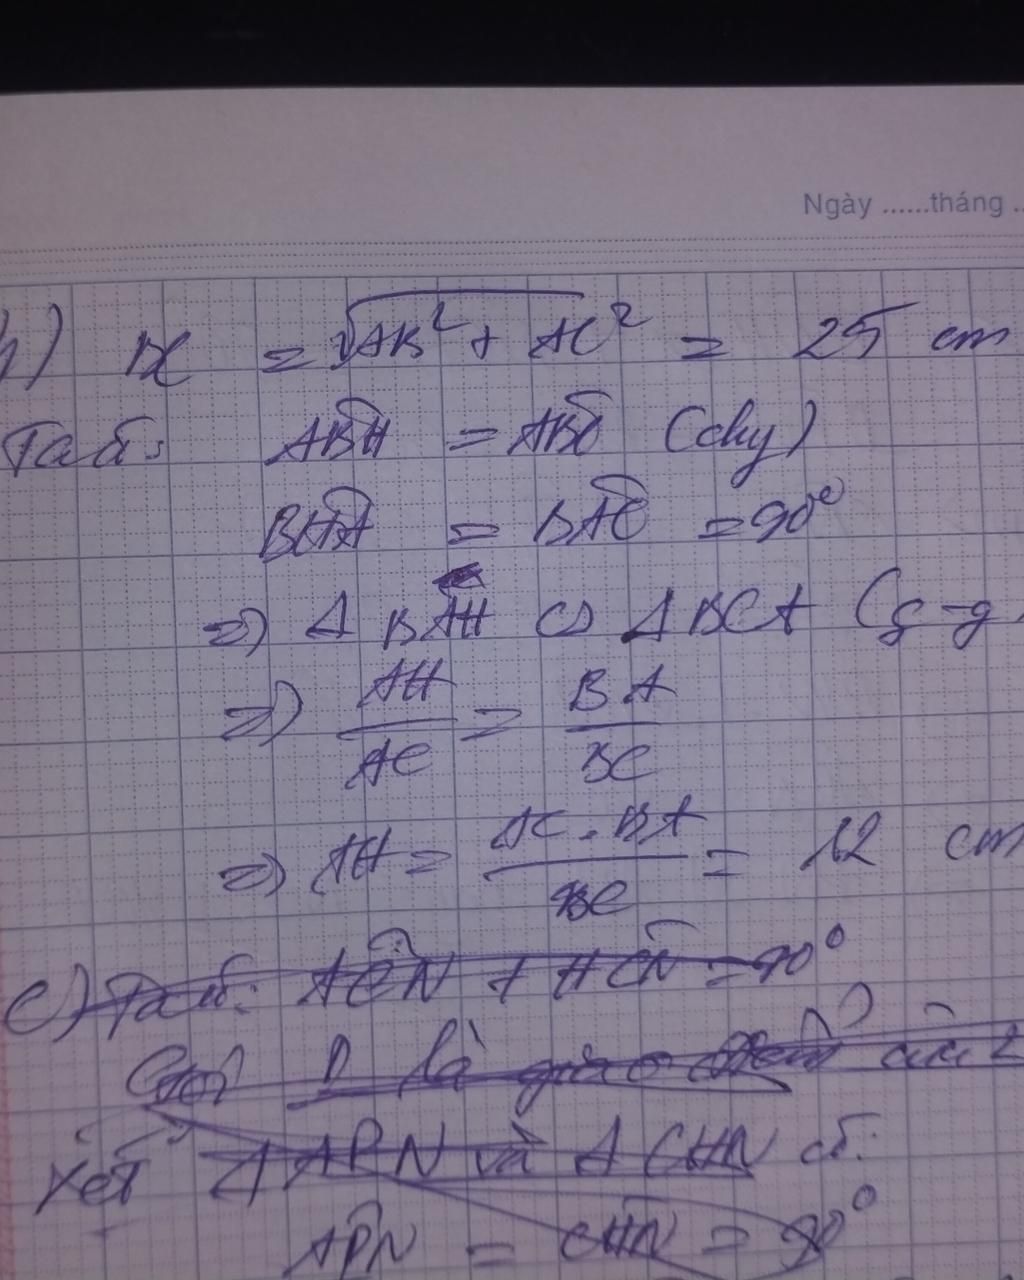 Ngày ......tháng ..
b) BC = √AB² + AC² = 25 cm
Ta có: ABH = ABC (chg)
BHA = BAC = 90°
=> Δ BAH ∽ Δ BCA (g-g
=> AH/AC = BA/BC
=> AH = AC . BA/BC = 12 cm
c) Ta có: ACN + HCN = 90°
Gọi D là giao điểm của
Xét Δ APN và Δ CHN có:
APN = CHN = 90°